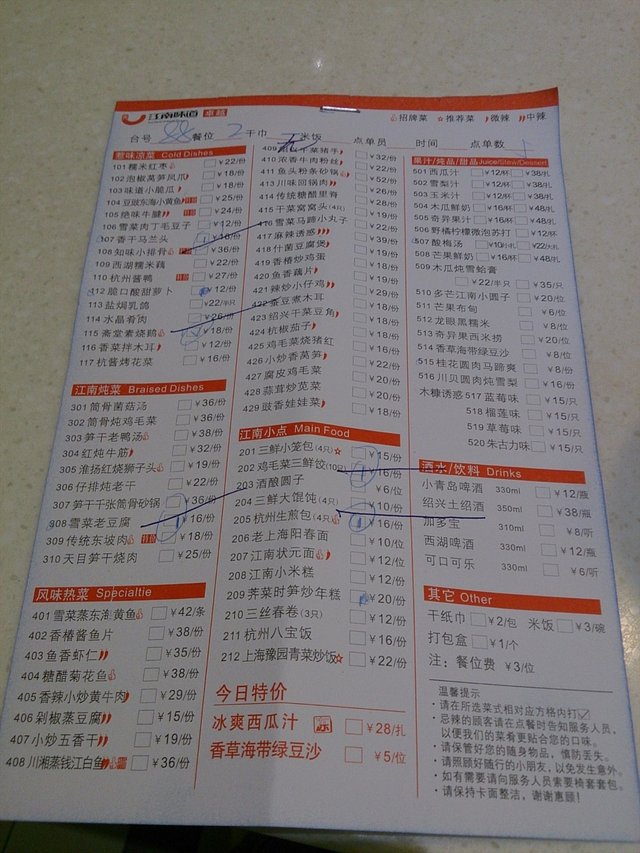 江南味道 卓越
招牌菜 推荐菜 微辣 中辣
台号 88 餐位 2 干巾 米饭 点单员 时间 点单数
惹味凉菜 Cold Dishes
101 糯米红枣 ¥22/份
102 泡椒莴笋凤爪 ¥18/份
103 味道小脆瓜 ¥18/份
104 豆豉东海小黄鱼 ¥25/份
105 绝味牛腱 ¥24/份
106 雪菜肉丁毛豆子 ¥12/份
107 香干马兰头 ¥18/份
108 知味小排骨 ¥36/份
109 西湖糯米藕 ¥22/份
110 杭州酱鸭 ¥27/份
112 脆口酸甜萝卜 ¥12/份
113 盐焗乳鸽 ¥22/半只
114 水晶肴肉 ¥26/份
115 斋堂素烧鹅 ¥18/份
116 香菜拌木耳 ¥12/份
117 杭酱烤花菜 ¥16/份
江南炖菜 Braised Dishes
301 筒骨菌菇汤 ¥36/份
302 筒骨炖鸡毛菜 ¥36/份
303 笋干老鸭汤 ¥38/份
304 红炖牛筋 ¥32/份
305 淮扬红烧狮子头 ¥19/份
306 仔排炖老干 ¥22/份
307 笋干千张筒骨砂锅 ¥36/份
308 雪菜老豆腐 ¥16/份
309 传统东坡肉 ¥18/份
310 天目笋干烧肉 ¥25/份
风味热菜 Specialtie
401 雪菜蒸东海黄鱼 ¥42/条
402 香椿酱鱼片 ¥38/份
403 鱼香虾仁 ¥35/份
404 糖醋菊花鱼 ¥38/份
405 香辣小炒黄牛肉 ¥29/份
406 剁椒蒸豆腐 ¥15/份
407 小炒五香干 ¥19/份
408 川湘蒸钱江白鱼 ¥36/份
410 浓香牛肉粉丝 ¥32/份
411 鱼头粉条砂锅 ¥52/份
413 川味回锅肉 ¥22/份
414 传统糖醋里脊
415 干菜窝窝头(4只)
416 雪菜马蹄小丸子
417 麻辣诱惑
418 什菌豆腐煲
419 香椿炒鸡蛋
420 鱼香藕片
421 辣炒小仔鸡
422 蚕豆煮木耳
423 绍兴干菜豆角
424 杭椒茄子
425 鸡毛菜烧猪红
426 小炒香莴笋
427 腐皮鸡毛菜
428 蒜茸炒苋菜
429 豉香娃娃菜
江南小点 Main Food
201 三鲜小笼包 ¥15/份
202 鸡毛菜三鲜饺(10只) 1 ¥16/份
203 酒酿圆子 ¥6/位
204 三鲜大馄饨(4只) ¥10/份
205 杭州生煎包(4只) 1 ¥16/份
206 老上海阳春面 ¥10/位
207 江南状元面 ¥12/位
208 江南小米糕 ¥12/份
209 荠菜时笋炒年糕 ¥20/份
210 三丝春卷(3只) ¥12/份
211 杭州八宝饭 ¥16/份
212 上海豫园青菜炒饭 ¥22/份
今日特价
冰爽西瓜汁 ¥28/扎
香草海带绿豆沙 ¥5/位
果汁/炖品/甜品 Juice/Stew/Dessert
501 西瓜汁 ¥12/杯 ¥38/扎
502 雪梨汁 ¥12/杯 ¥38/扎
503 玉米汁 ¥12/杯 ¥38/扎
504 木瓜鲜奶 ¥16/杯 ¥48/扎
505 奇异果汁 ¥16/杯 ¥48/扎
506 野橘柠檬微泡苏打 ¥12/杯
507 酸梅汤 ¥10/小扎 ¥22/大扎
508 芒果鲜奶 ¥16/杯 ¥48/扎
509 木瓜炖雪蛤膏
¥22/半只 ¥35/只
510 多芒江南小圆子 ¥20/位
511 芒果布甸 ¥6/位
512 龙眼黑糯米 ¥8/位
513 奇异果西米捞 ¥20/位
514 香草海带绿豆沙 ¥8/位
515 桂花圆肉马蹄爽 ¥8/份
516 川贝圆肉炖雪梨 ¥16/份
木糠诱惑 517 蓝莓味 ¥15/只
518 榴莲味 ¥15/只
519 草莓味 ¥15/只
520 朱古力味 ¥15/只
酒水/饮料 Drinks
小青岛啤酒 330ml ¥12/瓶
绍兴土绍酒 350ml ¥38/瓶
加多宝 310ml ¥8/听
西湖啤酒 330ml ¥12/瓶
可口可乐 330ml ¥6/听
其它 Other
干纸巾 ¥2/包 米饭 ¥3/碗
打包盒 ¥1/个
注：餐位费 ¥3/位
温馨提示
·请在所选菜式相对应方格内打☑
·忌辣的顾客请在点餐时告知服务人员，
以便我们的菜肴更贴合您的口味。
·请保管好您的随身物品，慎防丢失。
·请照顾好随行的小朋友，以免发生意外。
·如有需要请向服务人员索要椅套套包。
·请保持卡面整洁，谢谢惠顾！